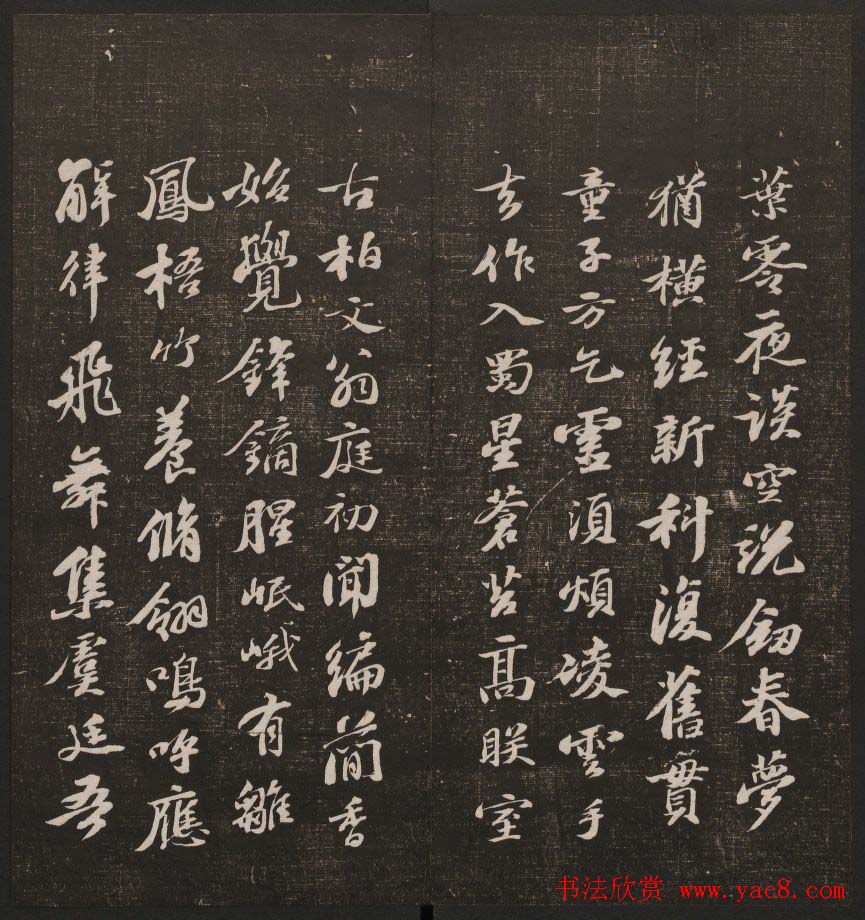 葉零夜談空説劒春夢
猶橫經新科復舊貫
童子方乞靈須煩凌雲手
去作入蜀星蒼苔高朕室
古柏文翁庭初聞編簡香
始覺鋒鏑腥岷峨有雛
鳳梧竹養脩翎鳴呼應
解律飛舞集虞廷吾
书法欣赏 www.yac8.com